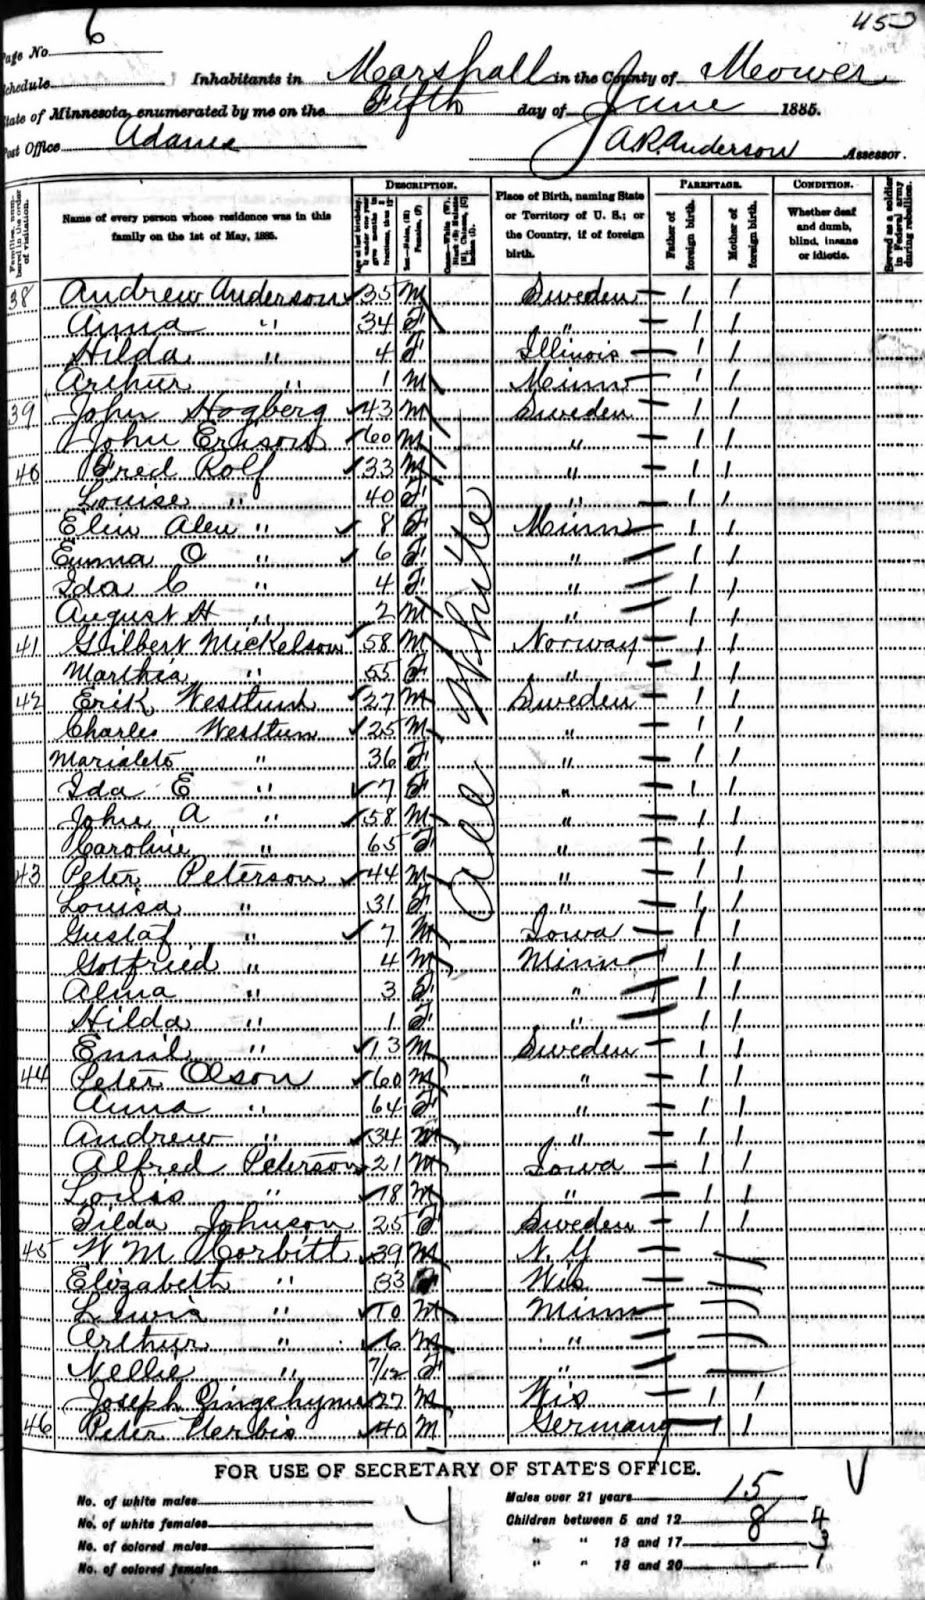 6
Page No.
450
Schedule
Inhabitants in Marshall in the County of Mower
State of Minnesota, enumerated by me on the Fifth day of June 1885.
Post Office Adams
A.R. Anderson Assessor.
Families, numbered in the order of visitation.
Name of every person whose residence was in this family on the 1st of May, 1885.
DESCRIPTION.
Place of Birth, naming State or Territory of U. S.; or the Country, if of foreign birth.
PARENTAGE.
Father of foreign birth.
Mother of foreign birth.
CONDITION.
Whether deaf and dumb, blind, insane or idiotic.
Served as a soldier in Federal army during rebellion.
All White
38 Andrew Anderson 35 M Sweden — 1 1
Anna " 34 F " — 1 1
Hilda " 4 F Illinois — 1 1
Arthur " 1 M Minn — 1 1
39 John Hogberg 43 M Sweden — 1 1
John Erison 60 M " — 1 1
40 Fred Rolf 33 M " — 1 1
Louise " 40 F " — 1 1
Elin Alen " 8 F Minn — 1 1
Emma O " 6 F " — 1 1
Ida C " 4 F " — 1 1
August H " 2 M " — 1 1
41 Guilbert Mickelson 58 M Norway — 1 1
Marthia " 55 F " — 1 1
42 Erik Westlund 27 M Sweden — 1 1
Charles Westlun 25 M " — 1 1
36 F " — 1 1
Ida E " 7 F " — 1 1
John A " 58 M " — 1 1
Caroline " 65 F " — 1 1
43 Peter Peterson 44 M " — 1 1
Louisa " 31 F " — 1 1
Gustaf " 7 M Iowa — 1 1
Gotfried " 4 M Minn — 1 1
Alma " 3 F " — 1 1
Hilda " 1 F " — 1 1
Emil " 13 M Sweden — 1 1
44 Peter Olson 60 M " — 1 1
Anna " 64 F " — 1 1
Andrew " 34 M " — 1 1
Alfred Peterson 21 M Iowa — 1 1
Louis " 18 M " — 1 1
Tilda Johnson 25 F Sweden — 1 1
45 W M Corbitt 39 M N. Y —
Elizabeth " 33 F Wis —
Lewis " 10 M Minn —
Arthur " 6 M " —
Nellie " 7/12 F " —
Joseph 27 M Wis — 1 1
46 Peter 40 M Germany — 1 1
FOR USE OF SECRETARY OF STATE'S OFFICE.
No. of white males
No. of white females
No. of colored males
No. of colored females
Males over 21 years 15
Children between 5 and 12 8 4
" " 13 and 17 3
" " 18 and 20 1